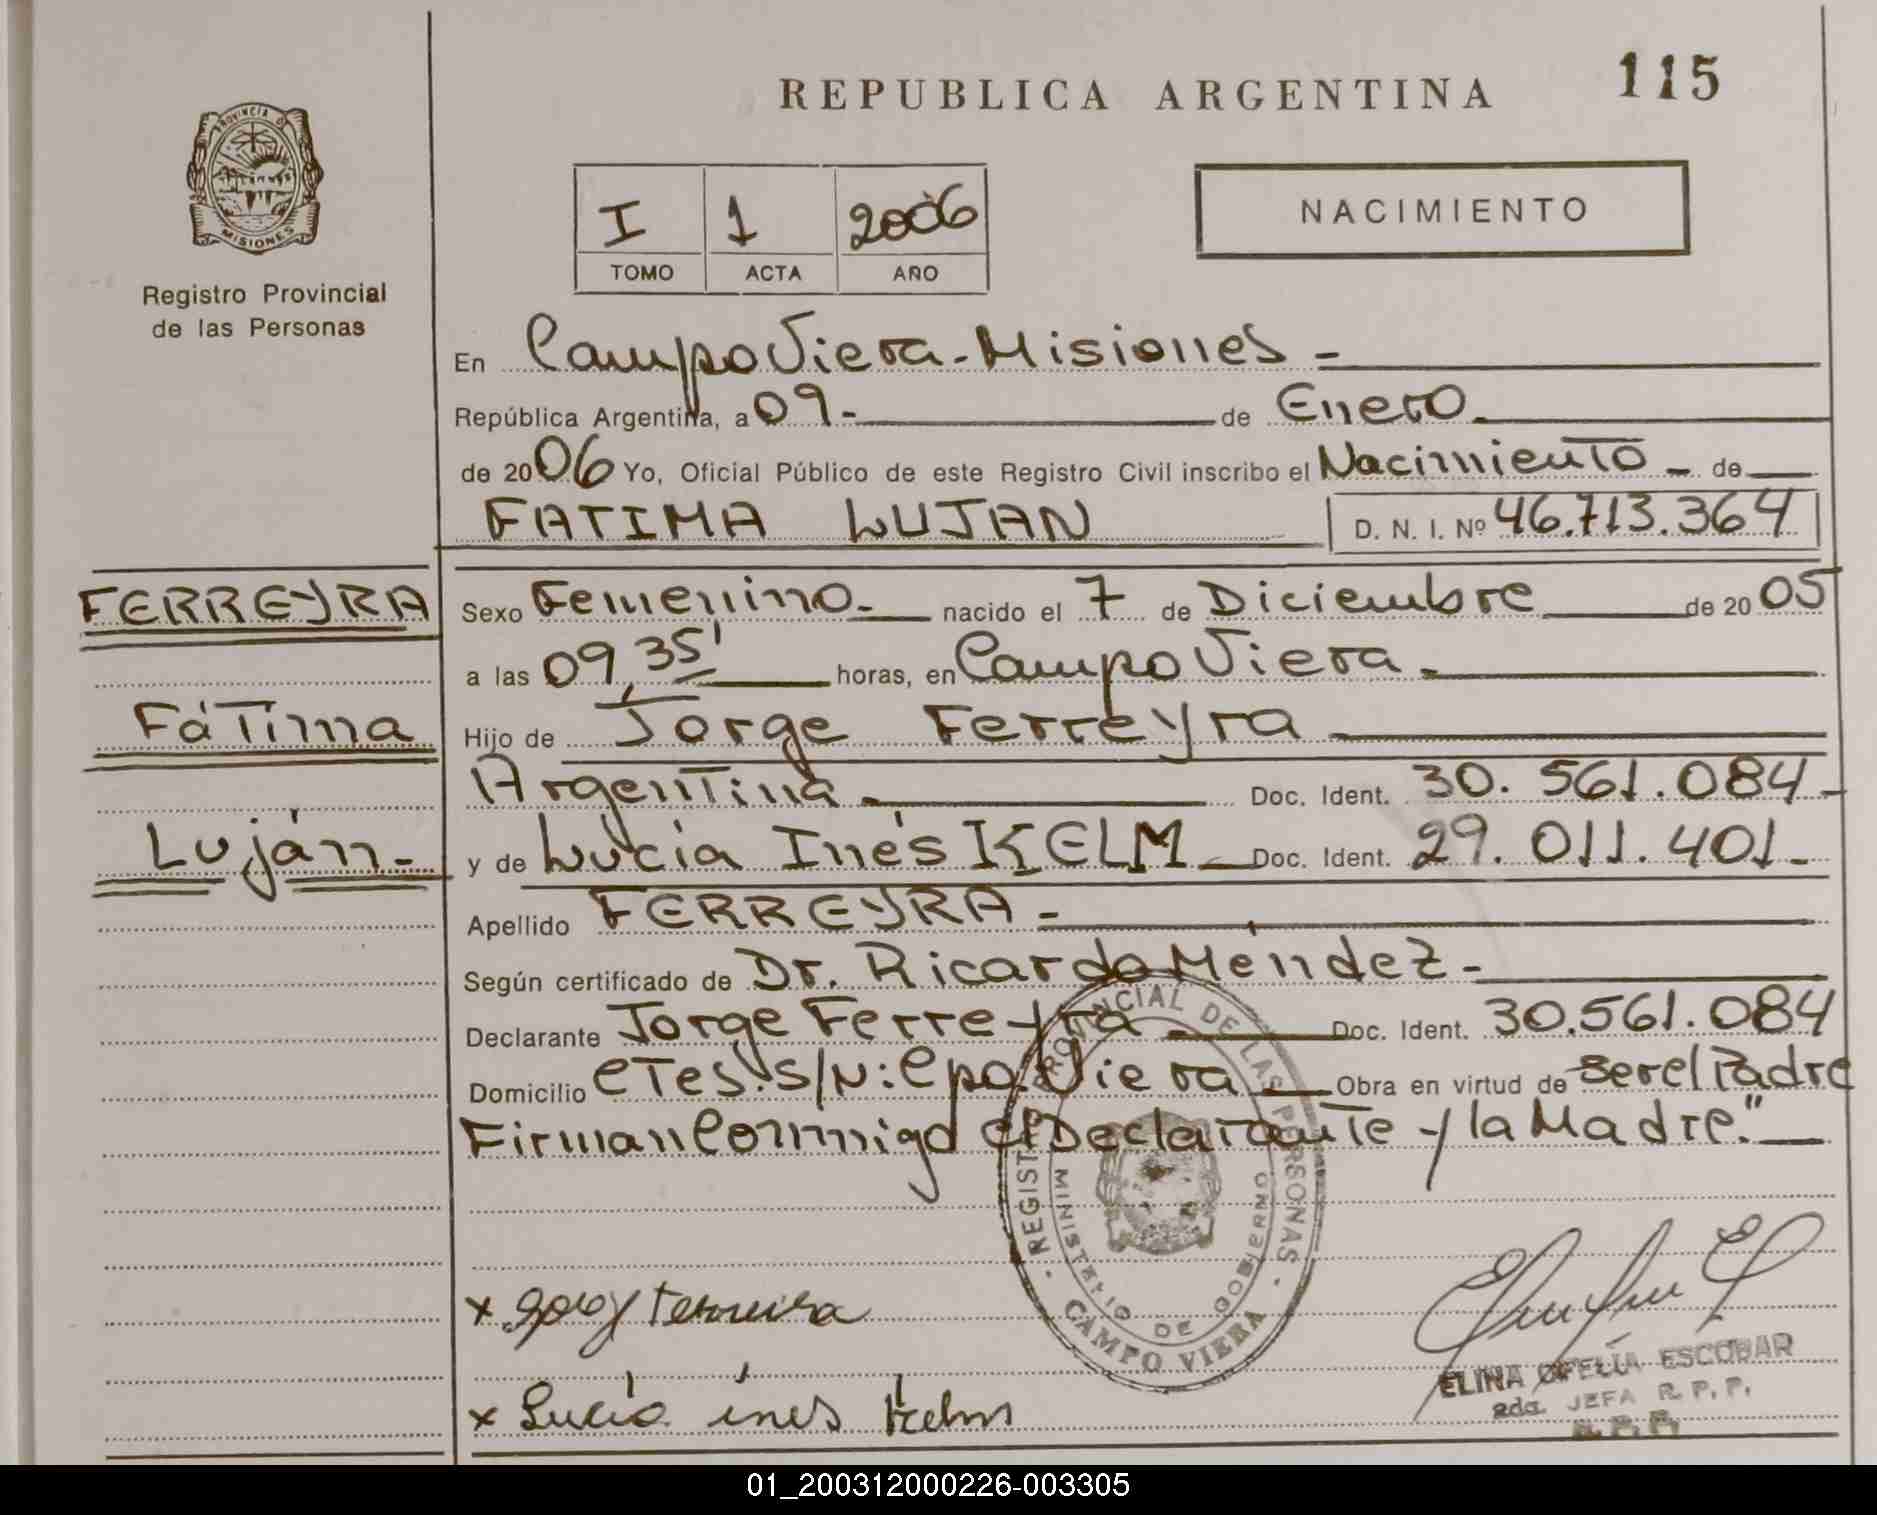 REPUBLICA ARGENTINA
115
PROVINCIA DE
MISIONES
Registro Provincial
de las Personas
I 1 2006
TOMO ACTA AÑO
NACIMIENTO
En Campo Viera - Misiones -
República Argentina, a 09.- de Enero.
de 2006 Yo, Oficial Público de este Registro Civil inscribo el Nacimiento - de
FATIMA LUJAN D. N. I. Nº 46.713.364
FERREYRA
Fátima
Luján-
Sexo Femenino.- nacido el 7 de Diciembre de 2005
a las 09,35' horas, en Campo Viera.
Hijo de Jorge Ferreyra
Argentina.- Doc. Ident. 30.561.084-
y de Lucia Inés KELM - Doc. Ident. 29.011.401-
Apellido FERREYRA -
Según certificado de Dr. Ricardo Méndez -
Declarante Jorge Ferreyra Doc. Ident. 30.561.084
Domicilio CTES. S/N: Cpo. Viera Obra en virtud de Ser el Padre
Firman Conmigo el Declarante y la Madre."
REGISTRO PROVINCIAL DE LAS PERSONAS
MINISTERIO DE GOBIERNO
CAMPO VIERA
x ferreira
x Lucia ines Kelm
ELINA OFELIA ESCOBAR
2da. JEFA R. P. P.
01_200312000226-003305